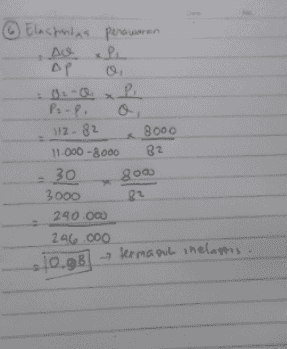 ⑥ Elastisitas penawaran
= ΔQ / ΔP × P₁ / Q₁
= Q₂ - Q₁ / P₂ - P₁ × P₁ / Q₁
= 112 - 82 / 11.000 - 8000 × 8000 / 82
= 30 / 3000 × 8000 / 82
= 240.000 / 246.000
= 0.98 → termasuk inelastis.